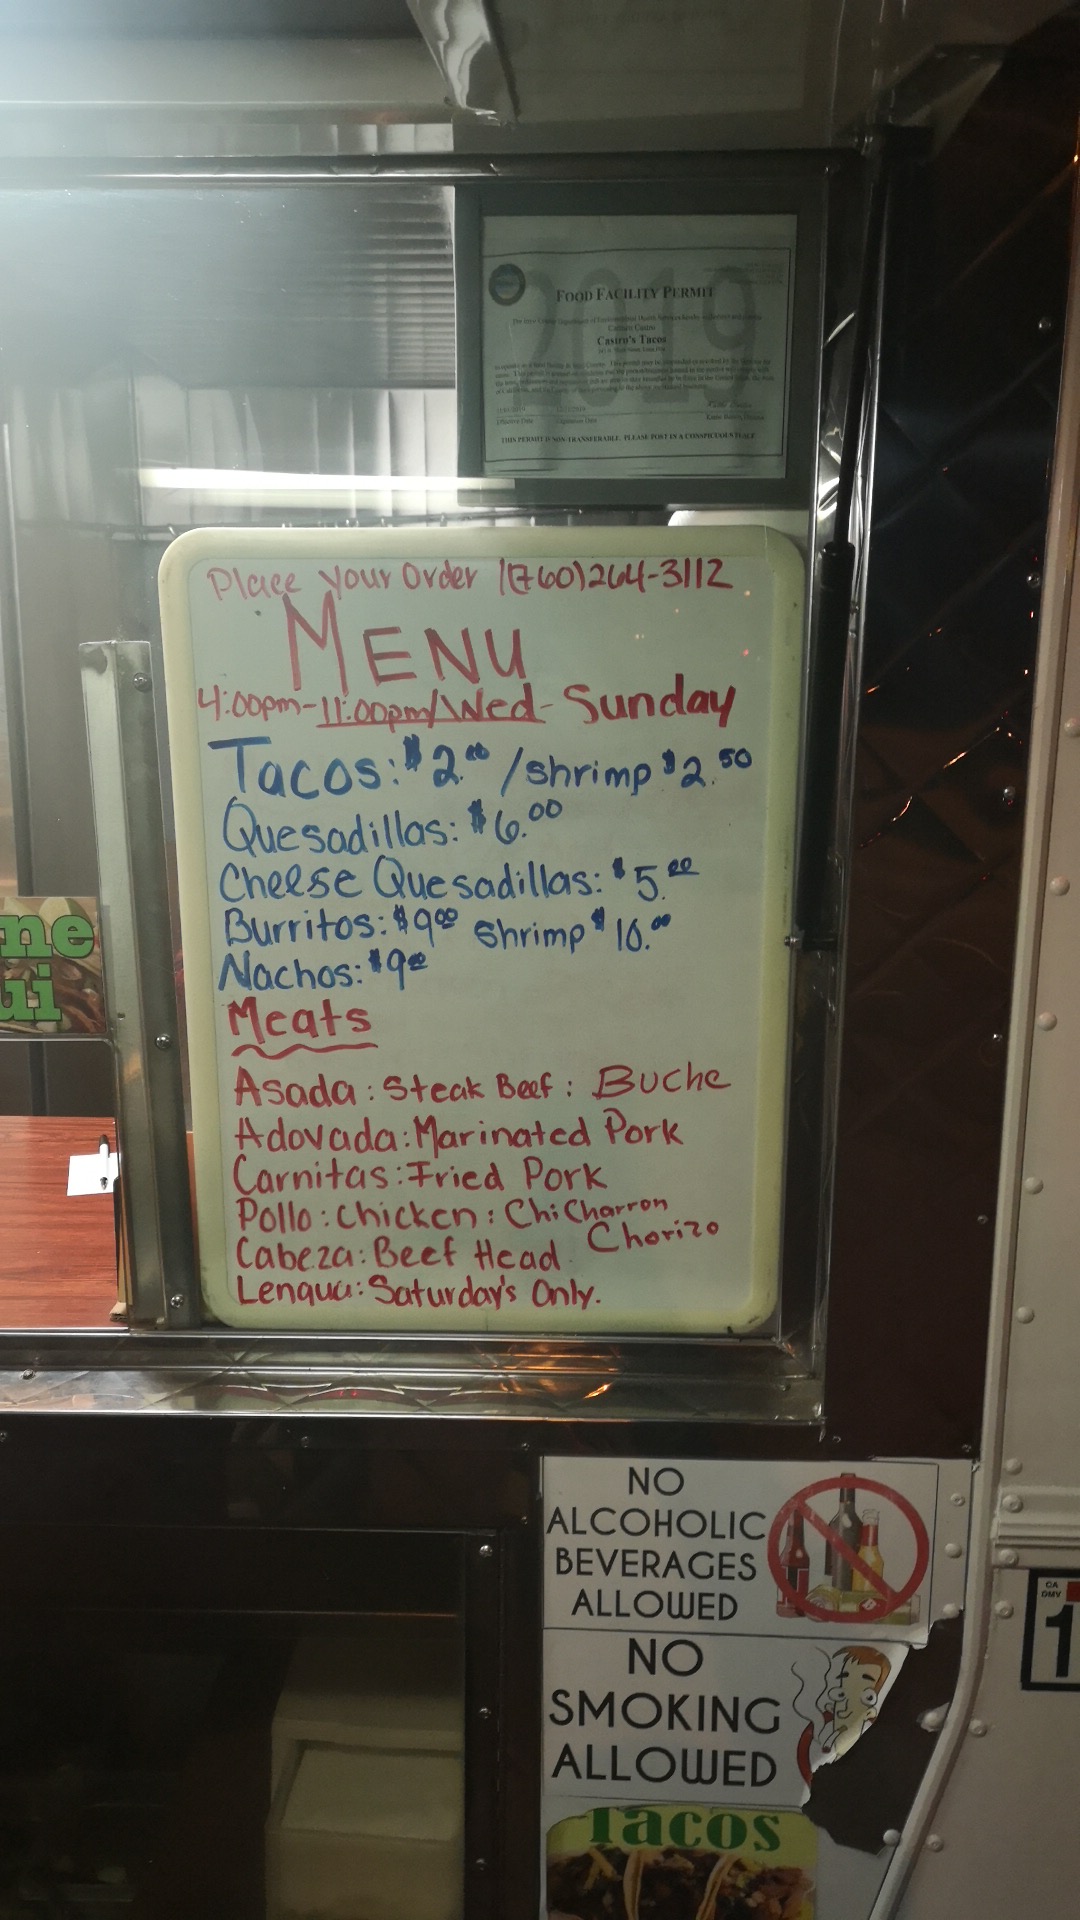 2019
FOOD FACILITY PERMIT
Castro's Tacos
Effective Date Expiration Date
THIS PERMIT IS NON-TRANSFERABLE. PLEASE POST IN A CONSPICUOUS PLACE
Place Your Order 1(760)264-3112
MENU
4:00pm-11:00pm/Wed-Sunday
Tacos: $2.00 /shrimp $2.50
Quesadillas: $6.00
Cheese Quesadillas: $5.00
Burritos: $9.00 Shrimp $10.00
Nachos: $9.00
Meats
Asada: Steak Beef: Buche
Adovada: Marinated Pork
Carnitas: Fried Pork
Pollo: Chicken: ChiCharron
Chorizo
Cabeza: Beef Head
Lengua: Saturday's Only.
ne
ui
NO
ALCOHOLIC
BEVERAGES
ALLOWED
NO
SMOKING
ALLOWED
Tacos
CA
DMV
1